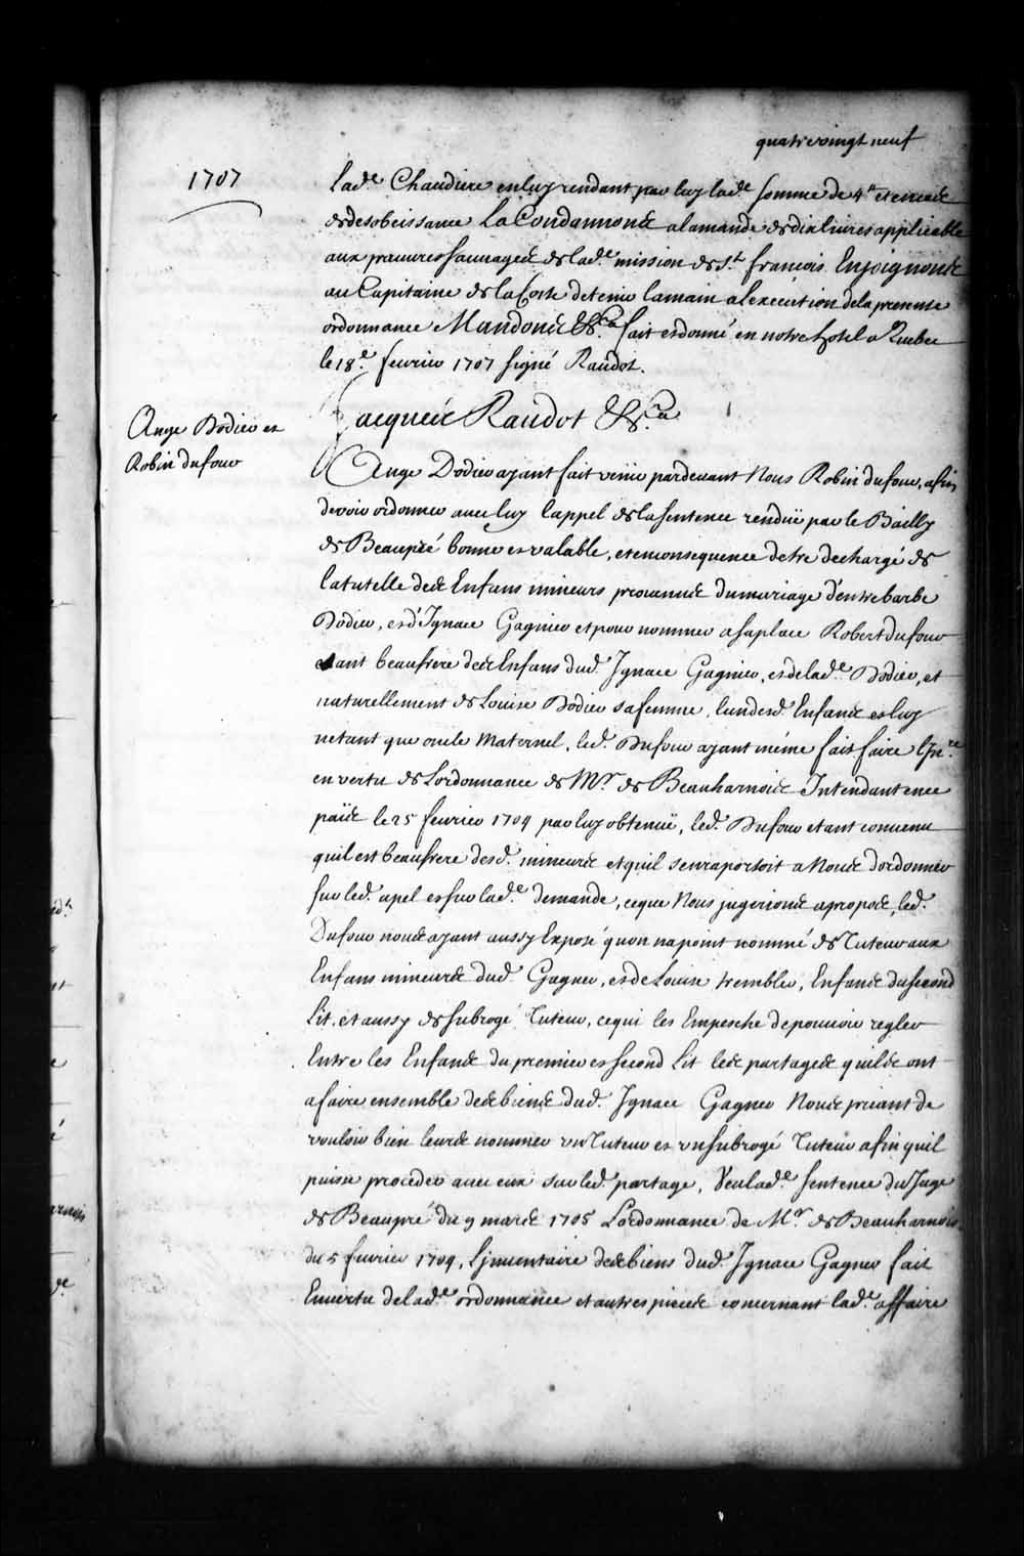 quatre vingt neuf
1707
lad.e Chaudiere en luy rendant par luy lad.e somme de 4tt et en cas
de desobeissance La Condamnons a lamande de dix livres applicable
aux pauvres sauvages de lad.e mission de S.t francois. Enjoignons
au Capitaine de la Coste de tenir la main a lexecution de la presente
ordonnance Mandons &c.a fait et donné en notre hotel a Quebec
le 18.e fevrier 1707 signé Raudot.
Jacques Raudot &c.a
Ange Dodier et
Robin dufour
Ange Dodier ayant fait venir pardevant Nous Robin dufour, afin
de voir ordonner avec luy lappel de la sentence renduë par le Bailly
de Beaupré bonne et valable, et en consequence detre dechargé de
la tutelle des Enfans mineurs provenus du mariage d'entre barbe
Dodier, et d'Ignace Gagnier et pour nommer a sa place Robert dufour
etant beaufrere des Enfans dud. Ignace Gagnier, et de lad.e Dodier, et
naturellement de Louise Dodier sa femme, lun desd. Enfans et luy
netant que oncle Maternel, led. Dufour ayant même fait faire Ljn.re
en vertu de Lordonnance de Mr. de Beauharnois Intendant en ce
païs le 25 fevrier 1704 par luy obtenuë, led. Dufour etant convenu
quil est beaufrere desd. mineurs et quil sen raportoit a Nous dordonner
sur led. apel et sur lad.e demande, ce que Nous jugerions apropos, led.
Dufour nous ayant aussy Exposé quon na point nommé de Tuteur aux
Enfans mineurs dud. Gagner, et de Louise tremblee, Enfans du second
Lit, et aussy de subrogé Tuteur, ce qui les Empesche de pouvoir regler
Entre les Enfans du premier et second Lit les partages quils ont
a faire ensemble des biens dud. Ignace Gagner Nous priant de
vouloir bien leurs nommer un Tuteur et un subrogé Tuteur afin quil
puisse proceder avec eux sur led. partage, Veu lad.e sentence du Juge
de Beaupré du 9 mars 1705 Lordonnance de M.r de Beauharnois
du 5 fevrier 1704, Ljnventaire des biens dud. Ignace Gagner fait
En vertu de lad.e ordonnance et autres pieces concernant lad.e affaire